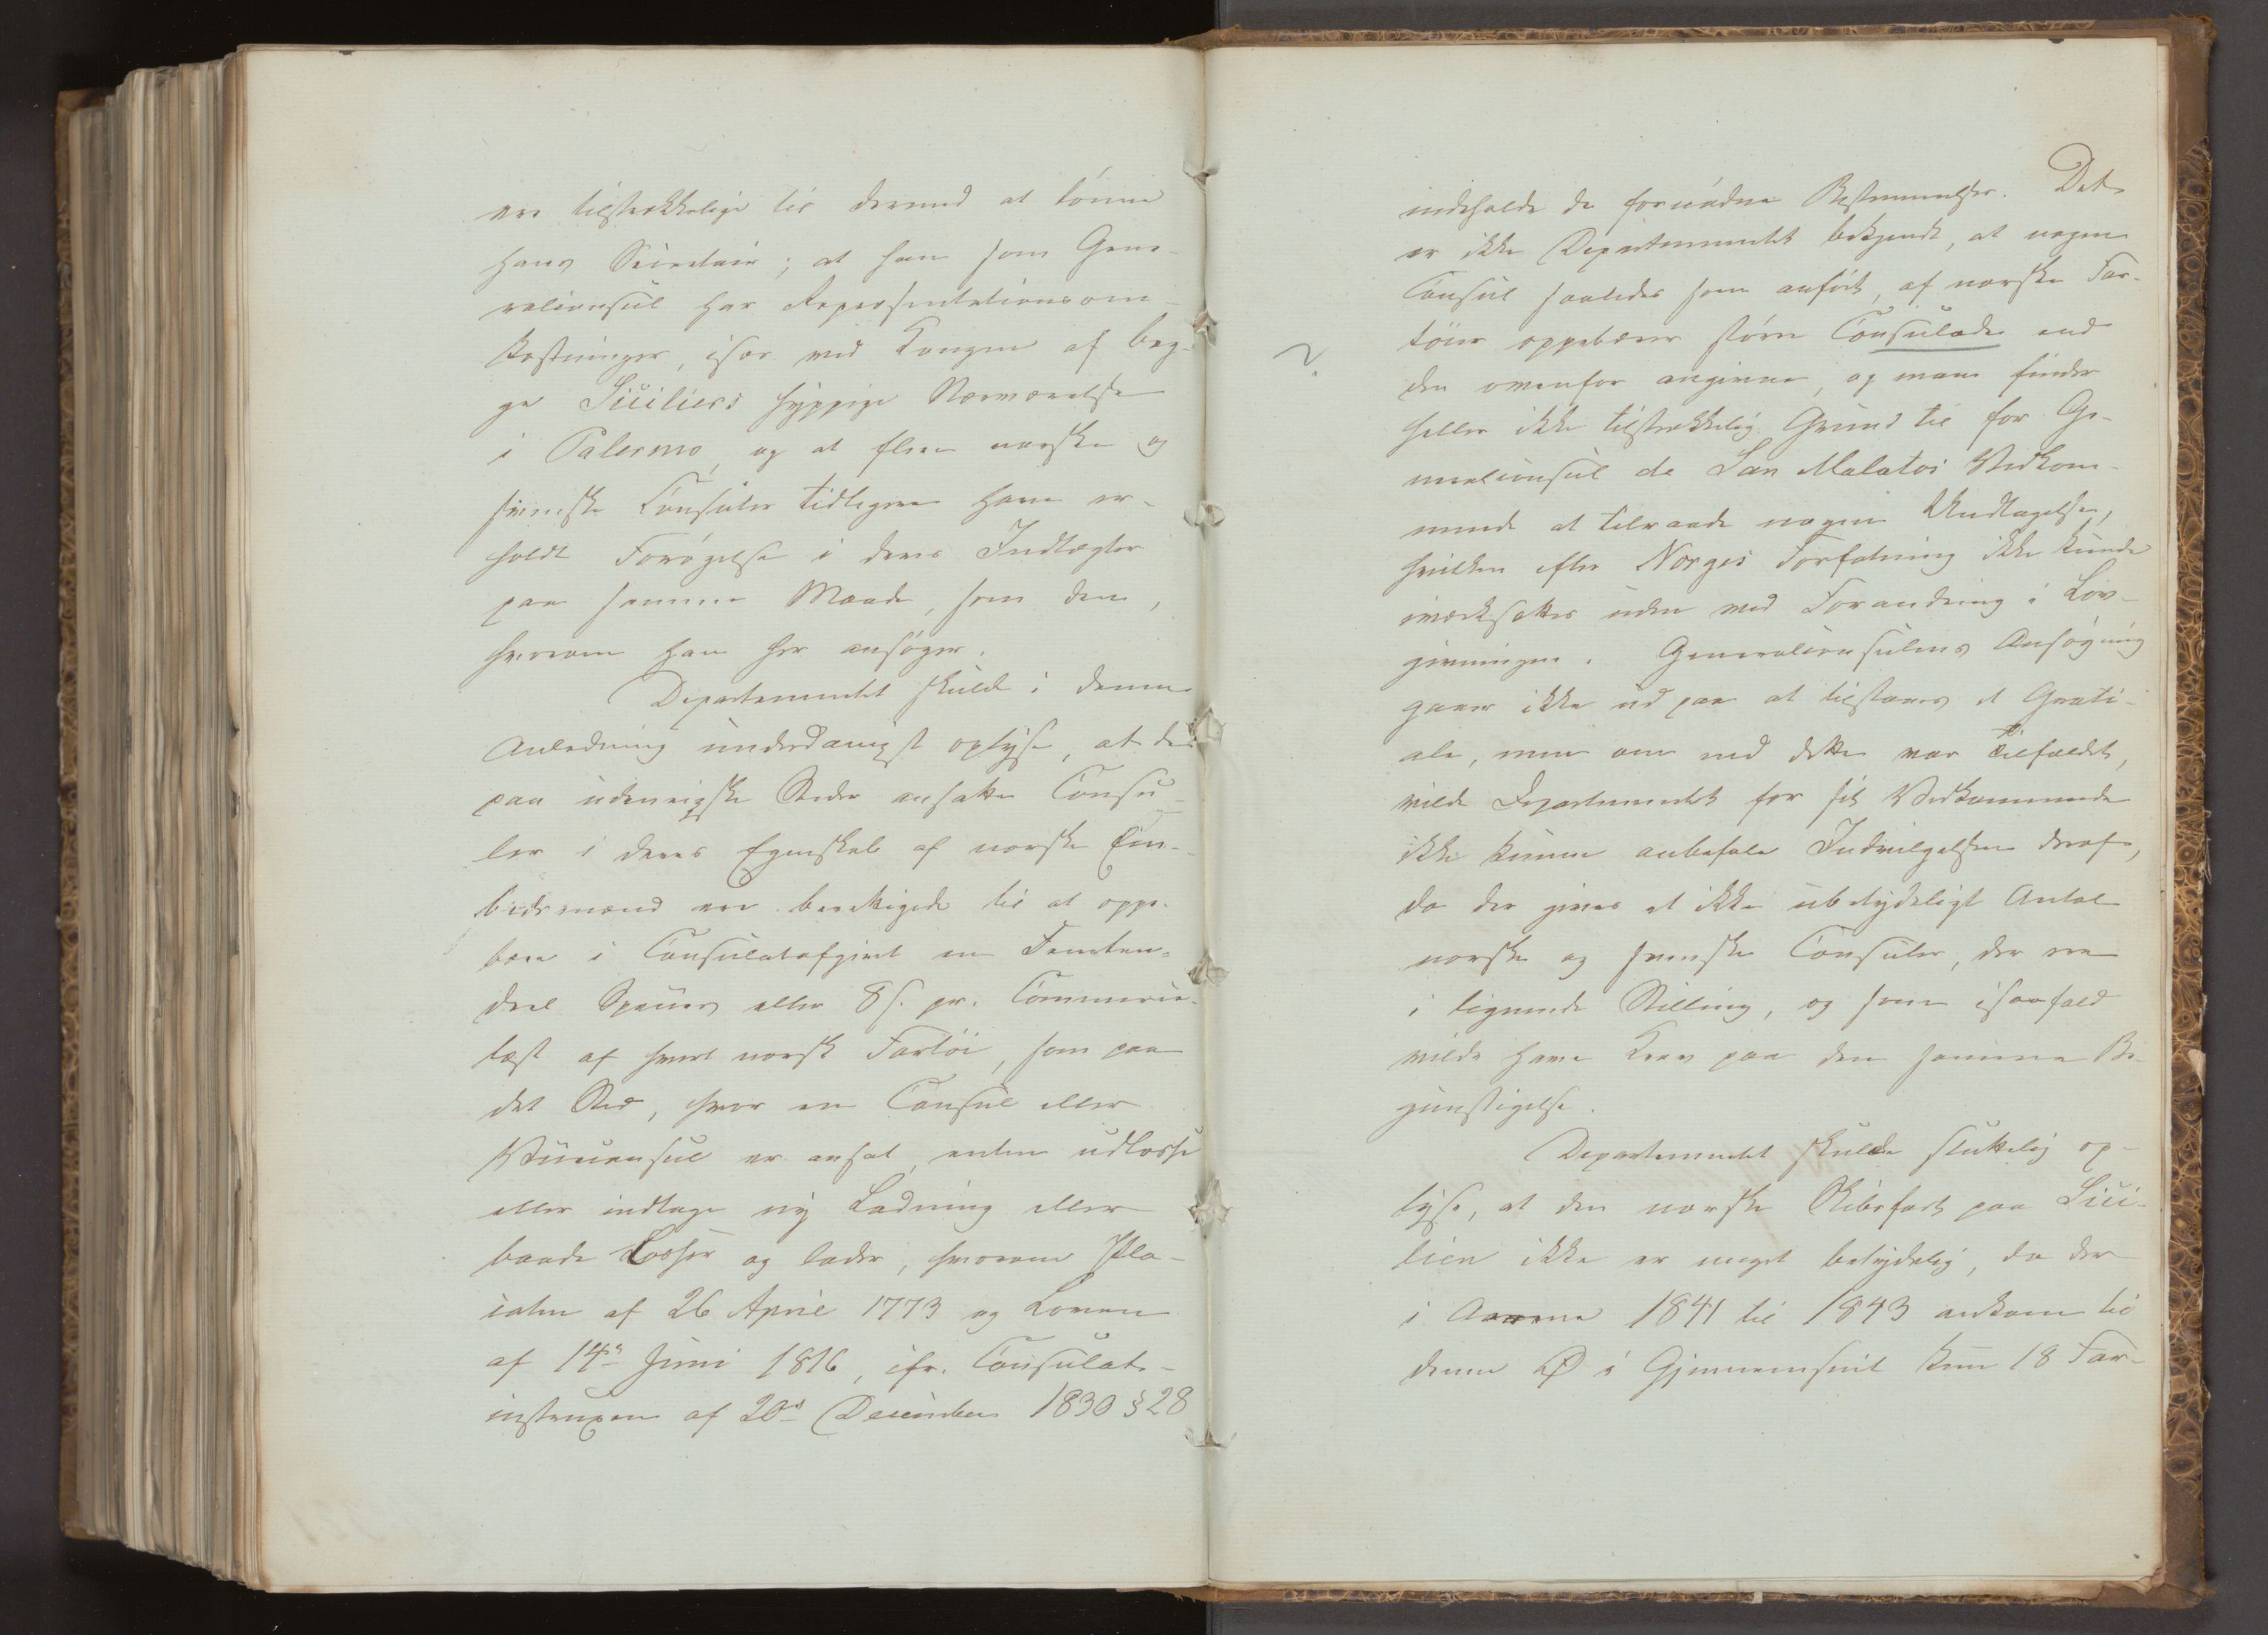 ere tilstrækkelige til dermed at lønne
hans Secretair; at han som Gene-
ralconsul har Repræsentationsom-
kostninger, især ved Kongen af beg-
ge Siciliers hyppige Nærværelse
i Palermo, og at flere norske og
svenske Consuler tidligere have er-
holdt Forøgelse i deres Indtægter
paa samme Maade, som den,
hvorom han her ansøger.
Departementet skulde i denne
Anledning underdanigst oplyse, at de
paa udenrigske Steder ansatte Consu-
ler i deres Egenskab af norske Em-
bedsmænd ere berettigede til at oppe-
bære i Consulatafgivt en Femten-
deel Species eller 8 s. pr. Commerce-
læst af hvert norsk Fartøi, som paa
det Sted, hvor en Consul eller
Viceconsul er ansat, enten udlosse
eller indtage ny Ladning eller
baade losser og lader, hvorom Pla-
caten af 26 April 1773 og Loven
af 14de Juni 1816, cfr. Consulat-
instruxen af 20de December 1830 § 28
indeholde de fornødne Bestemmelser. Det
er ikke Departementet bekjendt, at nogen
Consul saaledes som anført, af norske Far-
tøier oppebærer større Consulade end
?
den ovenfor angivne, og man finder
heller ikke tilstrækkelig Grund til for Ge-
neralconsul de San Malatos Vedkom-
mende at tilraade nogen Undtagelse,
hvilken efter Norges Forfatning ikke kunde
iværksættes uden ved Forandring i Lov-
givningen. Generalconsulens Ansøgning
gaaer ikke ud paa at tilstaaes et Grati-
ale, men om end dette var Tilfældet,
vilde Departementet for sit Vedkommende
ikke kunne anbefale Indvilgelsen deraf,
da der gives et ikke ubetydeligt Antal
norske og svenske Consuler, der ere
i lignende Stilling, og som isaafald
vilde have Krav paa den samme Be-
gunstigelse.
Departementet skulde sluttelig op-
lyse, at den norske Skibsfart paa Sici-
lien ikke er meget betydelig, da der
i Aarene 1841 til 1843 ankom til
denne Ø i Gjennemsnit kun 18 Far-